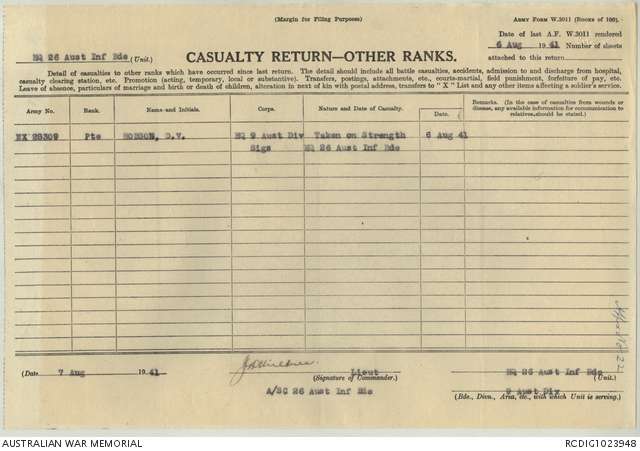 (Margin for Filing Purposes)
ARMY FORM W.3011 (BOOKS OF 100).
Date of last A.F. W.3011 rendered
6 Aug 1941 Number of sheets
attached to this return
HQ 26 Aust Inf Bde (Unit.)
CASUALTY RETURN—OTHER RANKS.
Detail of casualties to other ranks which have occurred since last return. The detail should include all battle casualties, accidents, admission to and discharge from hospital,
casualty clearing station, etc. Promotion (acting, temporary, local or substantive). Transfers, postings, attachments, etc., courts-martial, field punishment, forfeiture of pay, etc.
Leave of absence, particulars of marriage and birth or death of children, alteration in next of kin with postal address, transfers to "X" List and any other items affecting a soldier's service.
Army No. Rank. Name and Initials. Corps. Nature and Date of Casualty. Date. Remarks. (In the case of casualties from wounds or
disease, any available information for communication to
relatives, should be stated.)
NX 28309 Pte HOBSON, D.V. HQ 9 Aust Div Taken on Strength 6 Aug 41
Sigs HQ 26 Aust Inf Bde
(Date 7 Aug 1941 Lieut HQ 26 Aust Inf Bde
(Signature of Commander.) (Unit.)
A/SC 26 Aust Inf Bde 9 Aust Div
(Bde., Divn., Area, etc., with which Unit is serving.)
AUSTRALIAN WAR MEMORIAL RCDIG1023948